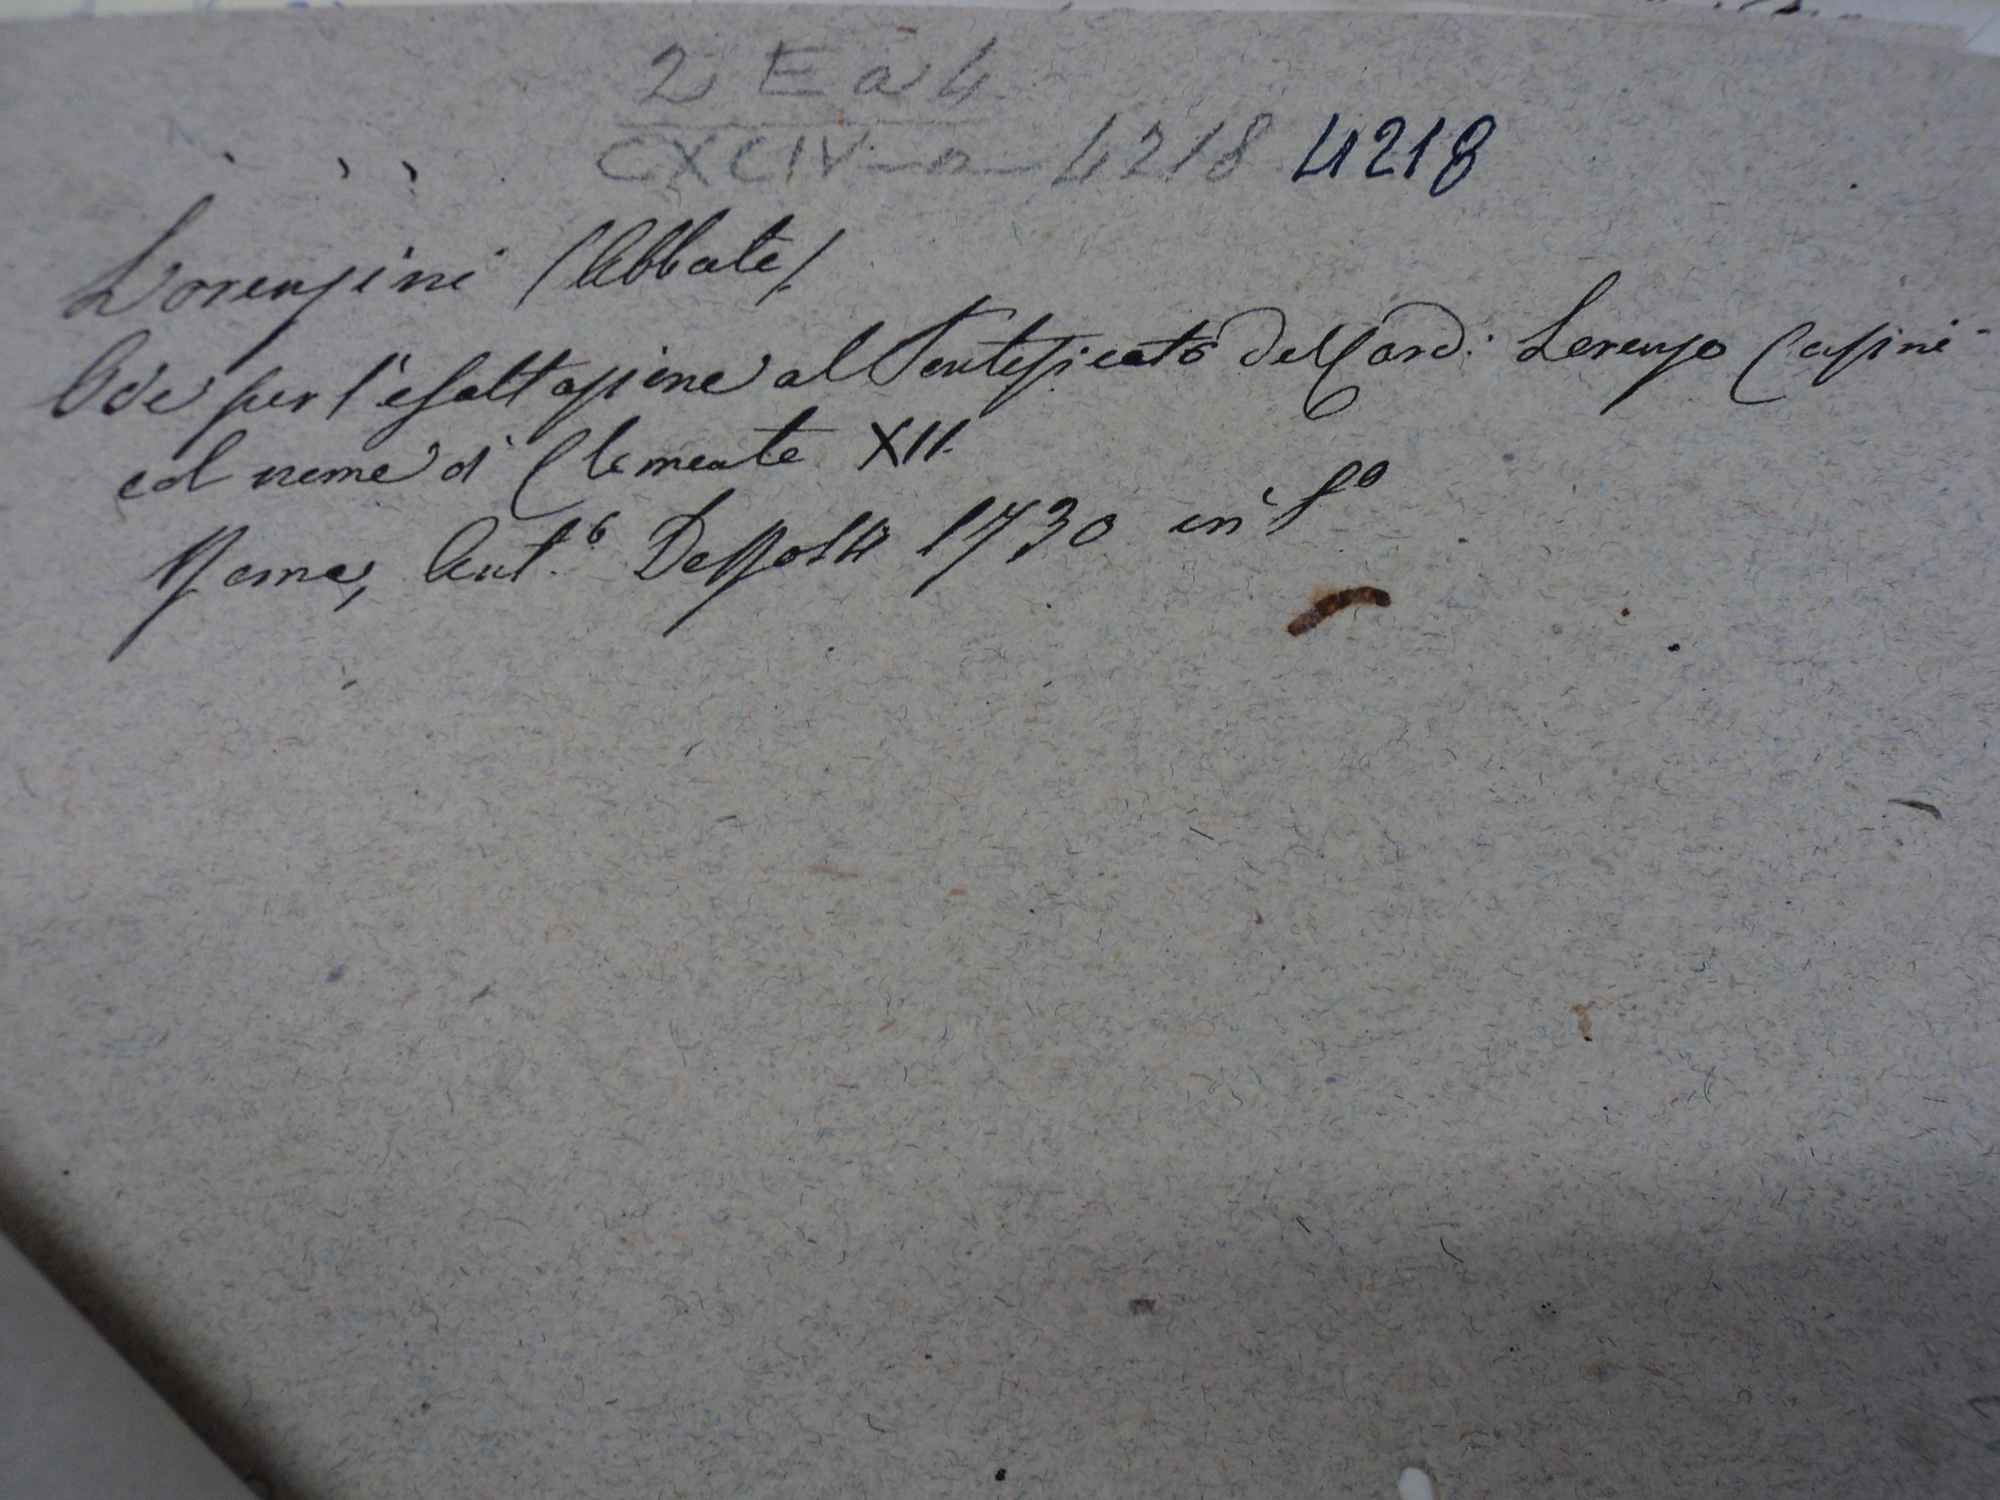 2 E a 4
CXCIV-a-4218 4218
Lorenzini (Abbate)
Ode per l'esaltazione al Pontificato del Card: Lorenzo Corsini
col nome di Clemente XII.
Roma, Ant.º De Rossi 1730 in fº